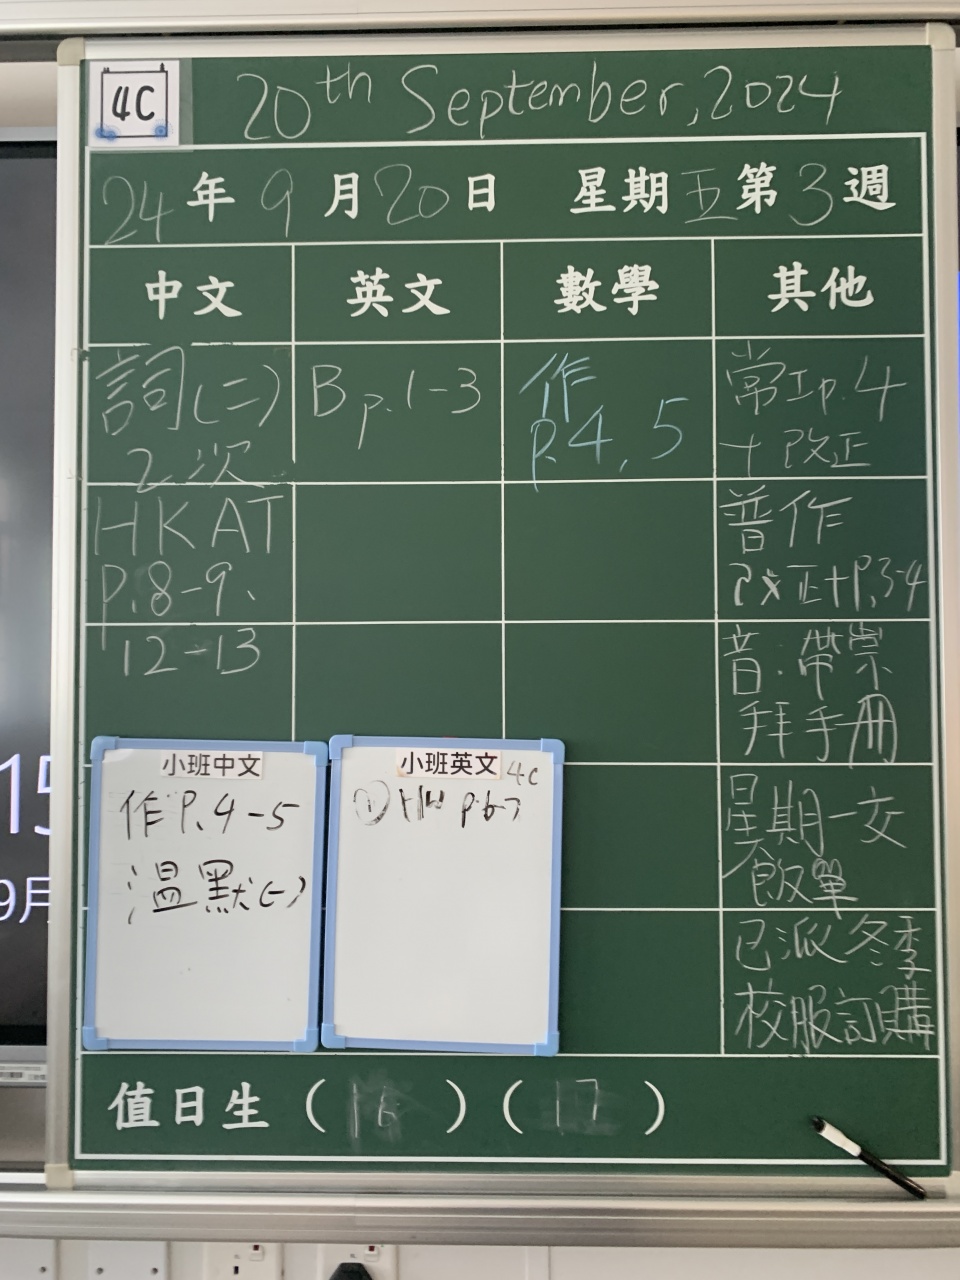 4C
20th September, 2024
24年9月20日 星期五第3週
中文 英文 數學 其他
詞(二)
2次
B p.1-3
作
p.4, 5
常工p.4
+改正
HKAT
P.8-9、
12-13
普作
改正+P.3-4
音:帶崇
拜手冊
星期一交
飯單
已派冬季
校服訂購
小班中文
作P.4-5
溫默(一)
小班英文 4C
① p.6-7
值日生(16)(17)
15
9月